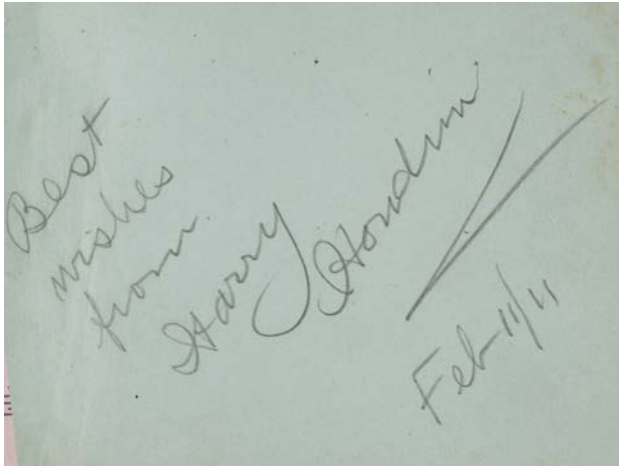 Best
wishes
from
Harry Houdini
Feb 11/11